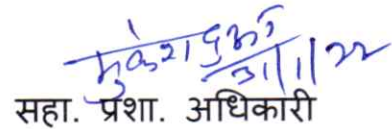 मुकेश
31/1/22
सहा. प्रशा. अधिकारी